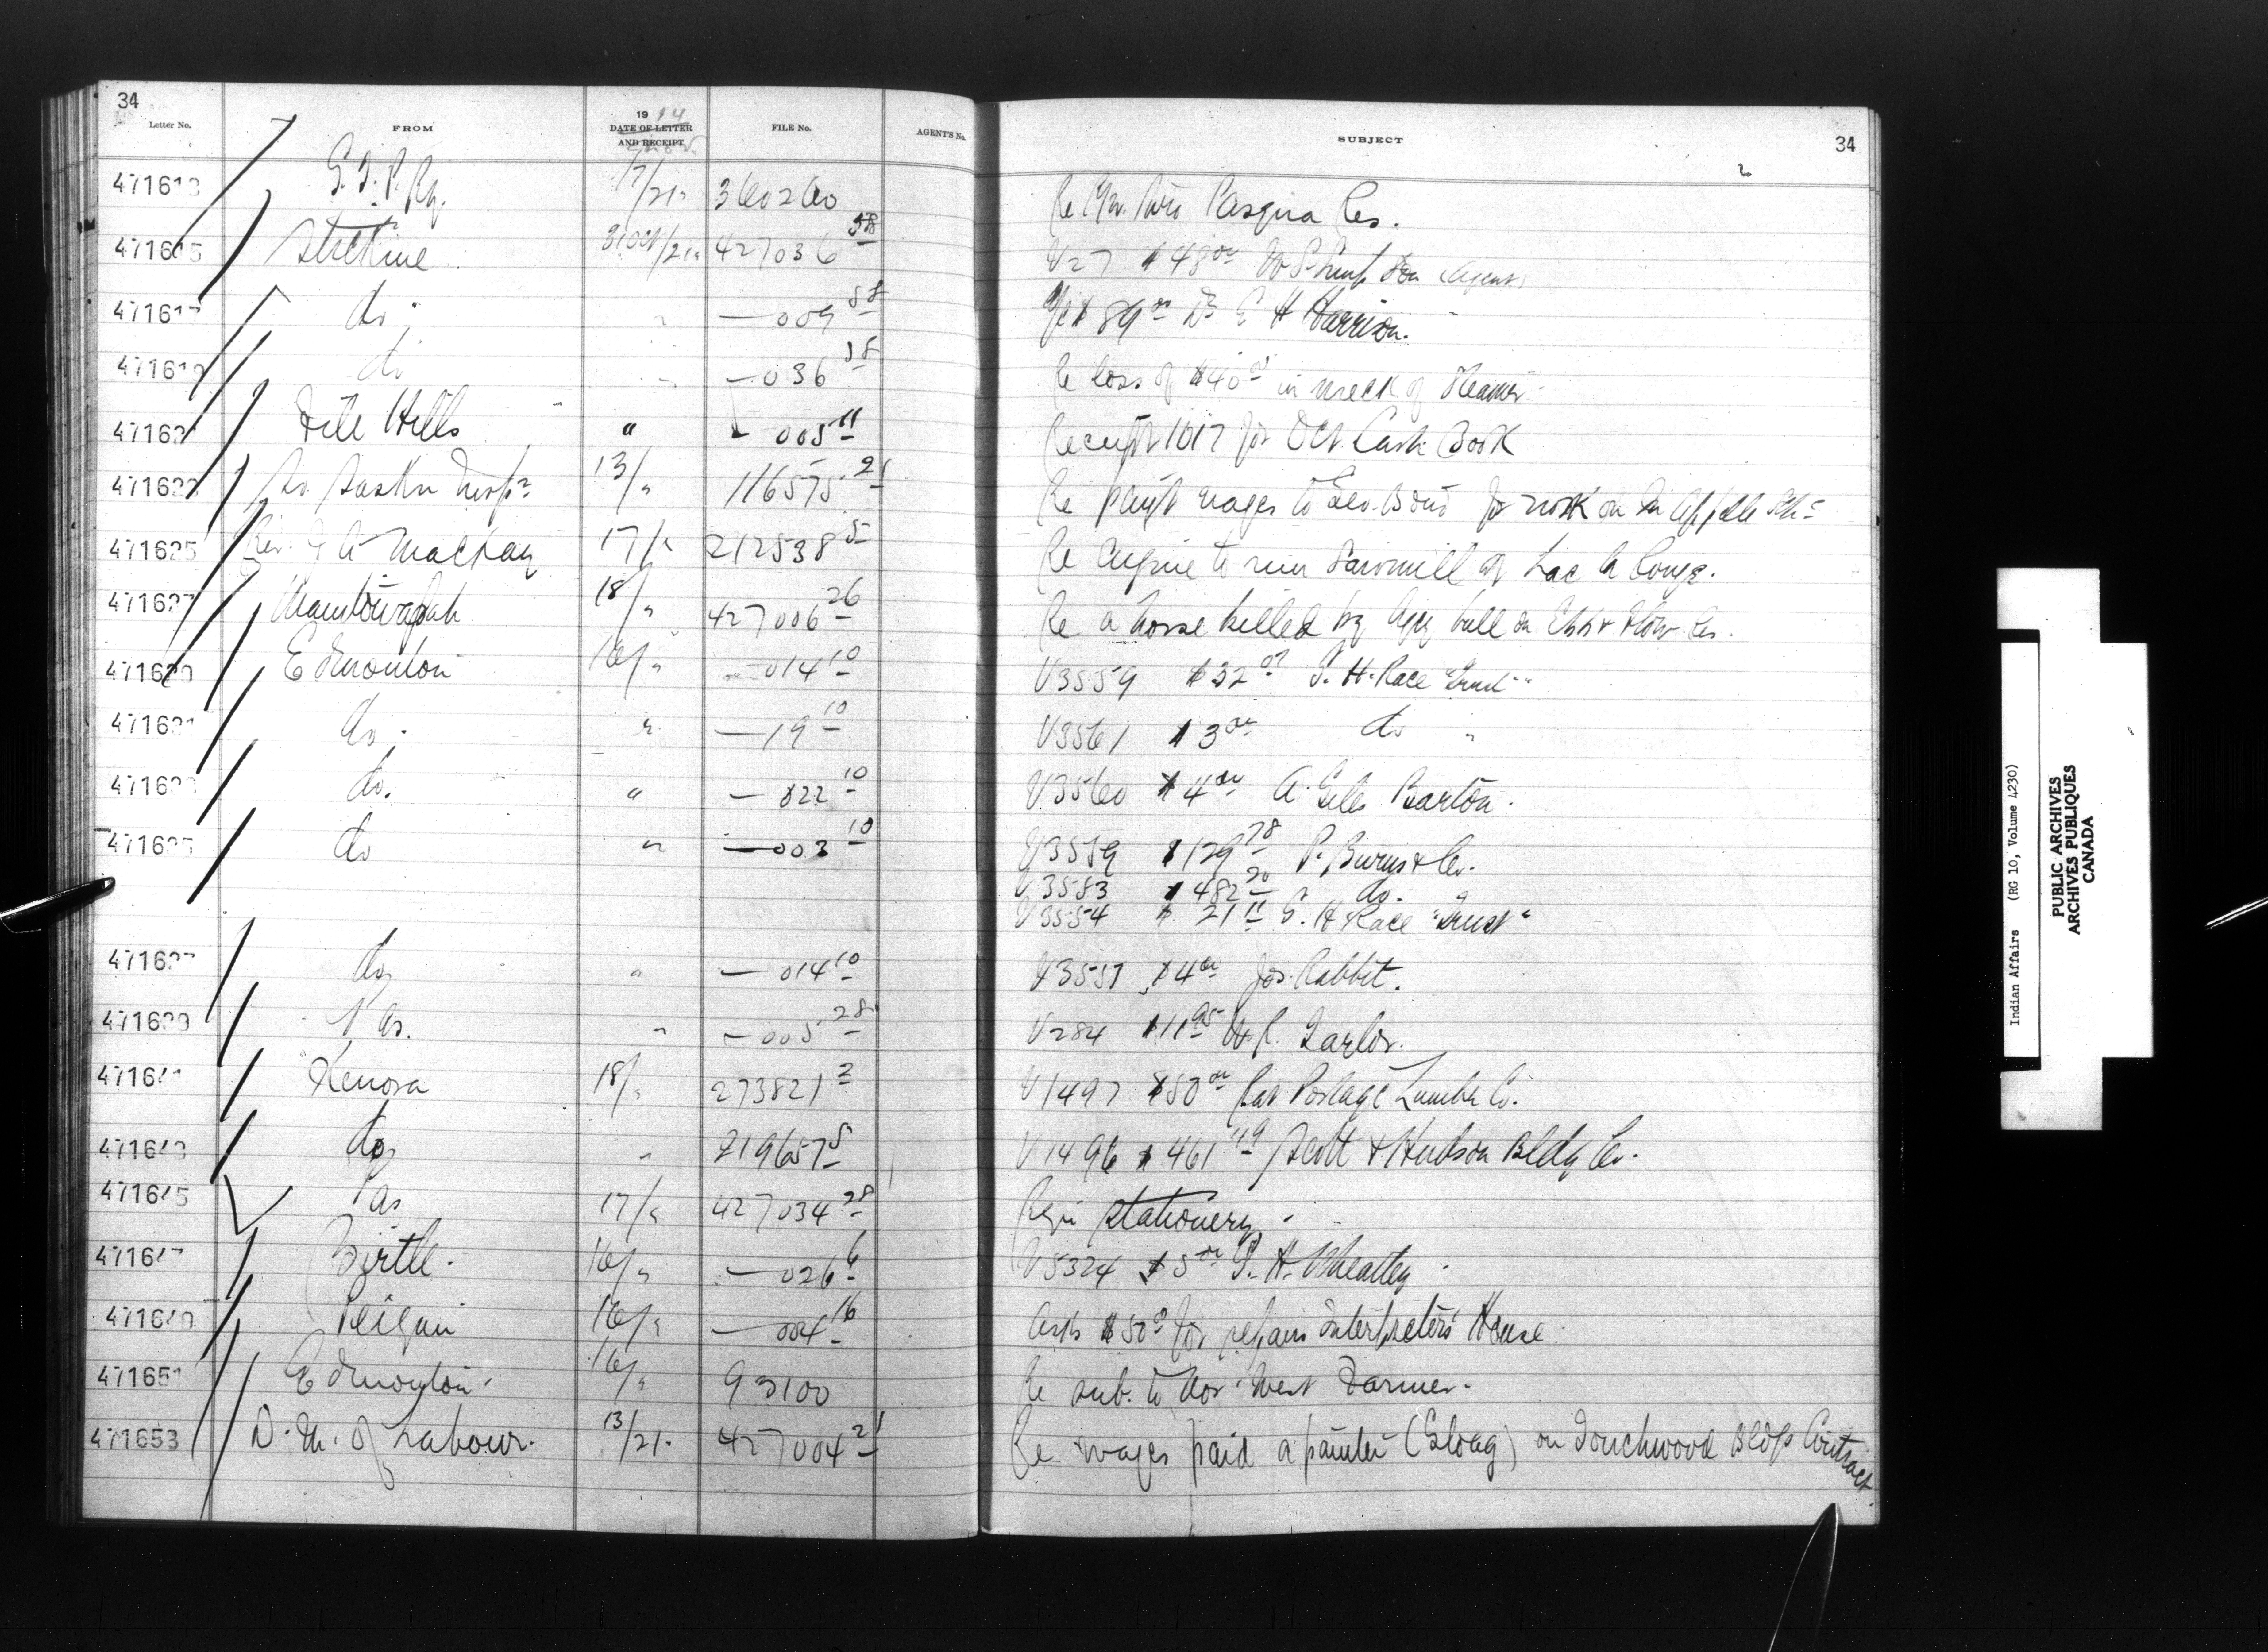 34
Letter No. FROM 19 14 DATE OF LETTER AND RECEIPT FILE No. AGENT'S No. SUBJECT 34
471613 G.T.P. Ry. 17/21 360260 Re Pasqua Res.
471615 Stickine 31 Oct/21 427036 58 V27 $48 00 Agent
471617 do — 009 58 $89 00 Dr E H Harrison.
471619 do — 036 58 Re loss of $40 00 in wreck of Steamer
471621 File Hills " — 005 11 Receipt 1017 for Oct. Cash Book
471623 So. Saskn Insp. 13/" 116575 21 Re paymt wages to Geo. Bond for work on Qu'Appelle Sch
471625 Rev. J A Mackay 17/" 212538 5 Re engine to run Sawmill at Lac la Ronge.
471627 Manitowapah 18/" 427006 26 Re a horse killed by Agcy bull on Ebb & Flow Res.
471629 Edmonton 16/" — 014 10 V3559 $32 07 G. H. Race "Trust"
471631 do. " — 19 10 V3561 $3 00 do "
471633 do. " — 022 10 V3560 $4 00 A. Giles Barton.
471635 do " — 003 10 V3579 $129 78 P. Burns & Co.
V3583 $482 20 do.
V3554 $21 11 G. H Race "Trust"
471637 do " — 014 10 V3557 $4 00 Jos. Rabbit.
471639 Pas. " — 005 28 V284 $11 95 W. R. Tarlor.
471641 Kenora 18/" 273821 2 V1497 $50 00 Rat Portage Lumber Co.
471643 do " 219657 5 V1496 $461 49 Scott & Hudson Bldg Co.
471645 Pas 17/" 427034 28 Reqn stationery
471647 Birtle. 16/" — 026 6 V5324 $5 00 S. H. Wheatley
471649 Peigan 16/" — 004 16 Asks $50 00 for repairs Interpreters' House
471651 Edmonton 16/" 93100 Re sub. to Nor' West Farmer.
471653 D. M. of Labour. 13/21 427004 21 Re wages paid a painter (Sloag) on Touchwood Bldgs Contract.
Indian Affairs (RG 10, Volume 4230)
PUBLIC ARCHIVES
ARCHIVES PUBLIQUES
CANADA